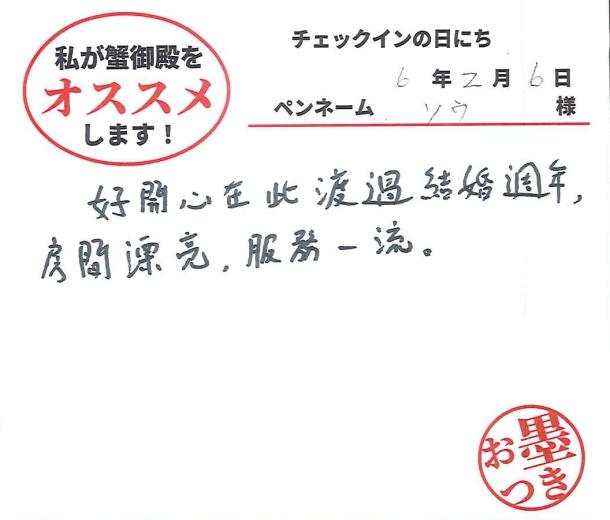 私が蟹御殿を
オススメ
します！
チェックインの日にち
6年2月6日
ペンネーム ソウ 様
好開心在此渡過結婚週年，
房間漂亮，服務一流。
お墨
つき